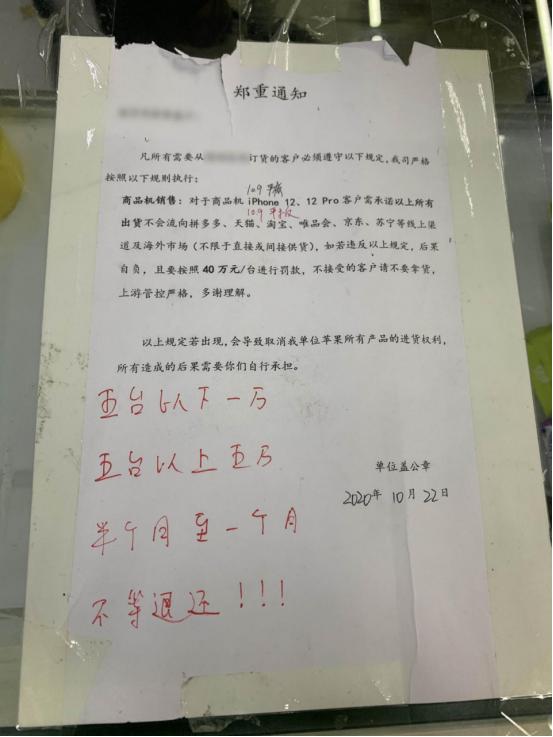 郑重通知
凡所有需要从
订货的客户必须遵守以下规定，我司严格
按照以下规则执行：
10.9 平板
商品机销售：对于商品机 iPhone 12、12 Pro 客户需承诺以上所有
10.9 平板
出货不会流向拼多多、天猫、淘宝、唯品会、京东、苏宁等线上渠
道及海外市场（不限于直接或间接供货），如若违反以上规定，后果
自负，且要按照 40 万元/台进行罚款，不接受的客户请不要拿货，
上游管控严格，多谢理解。
以上规定若出现，会导致取消我单位苹果所有产品的进货权利，
所有造成的后果需要你们自行承担。
五台以下一万
五台以上五万
单位盖公章
2020年 10月 22日
半个月至一个月
不等退还！！！